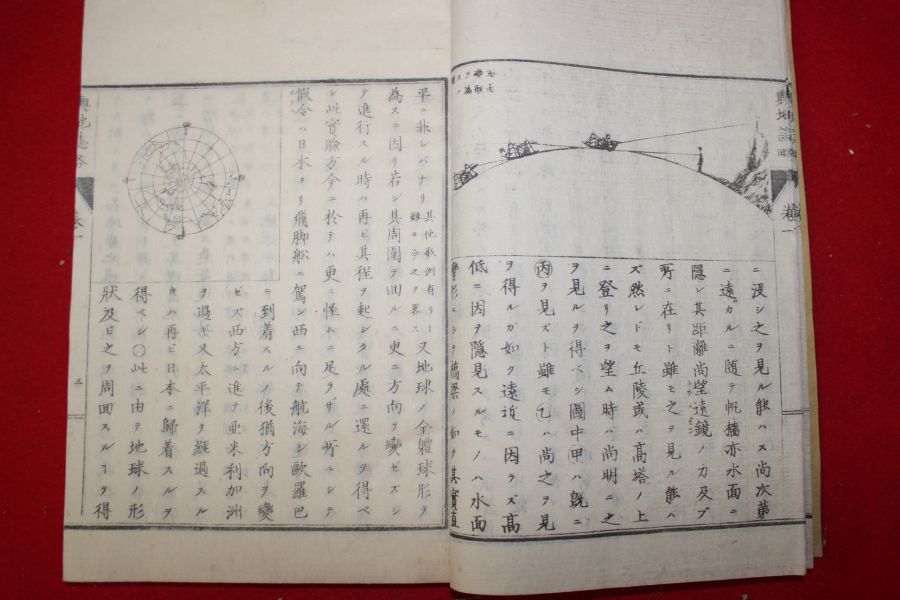 輿地誌略
巻一
ニ没シ之ヲ見ル能ハス尚次第
ニ遠ガルニ随テ帆檣亦水面ニ
隱レ其距離尚望遠鏡ノ力及ブ
所ニ在リト雖モ之ヲ見ル能ハ
ズ然レドモ丘陵或ハ高塔ノ上
ニ登リ之ヲ望ム時ハ尚明ニ之
ヲ見ルヲ得ベシ圖中甲ハ既ニ
丙ヲ見ズト雖モ乙ハ尚之ヲ見
ヲ得ルガ如ク遠近ニ因ラズ高
低ニ因テ隱見スルモノハ水面
平ニ非レバナリ其他影例有リト雖モ今之ヲ畧ス又地球ノ全軆球形ヲ
為スニ因リ若シ其周圍ヲ回ルニ更ニ方向ヲ變ゼズシ
テ進行スル時ハ再ビ其程ヲ起シタル處ニ還ルヲ得ベ
シ此實驗方今ニ於テハ更ニ怪ムニ足ラザル所ニシテ
假令ハ日本ヨリ飛脚船ニ駕シ西ニ向テ航海シ歐羅巴
ニ到着スルノ後猶方向ヲ變
ゼズ西方ニ進テ亜米利加洲
ヲ過ギ又太平洋ヲ經過スル
時ハ再ビ日本ニ歸着スルヲ
得ベシ〇此ニ由テ地球ノ形
狀及ビ之ヲ周回スルヿヲ得
輿地誌略
巻一
三